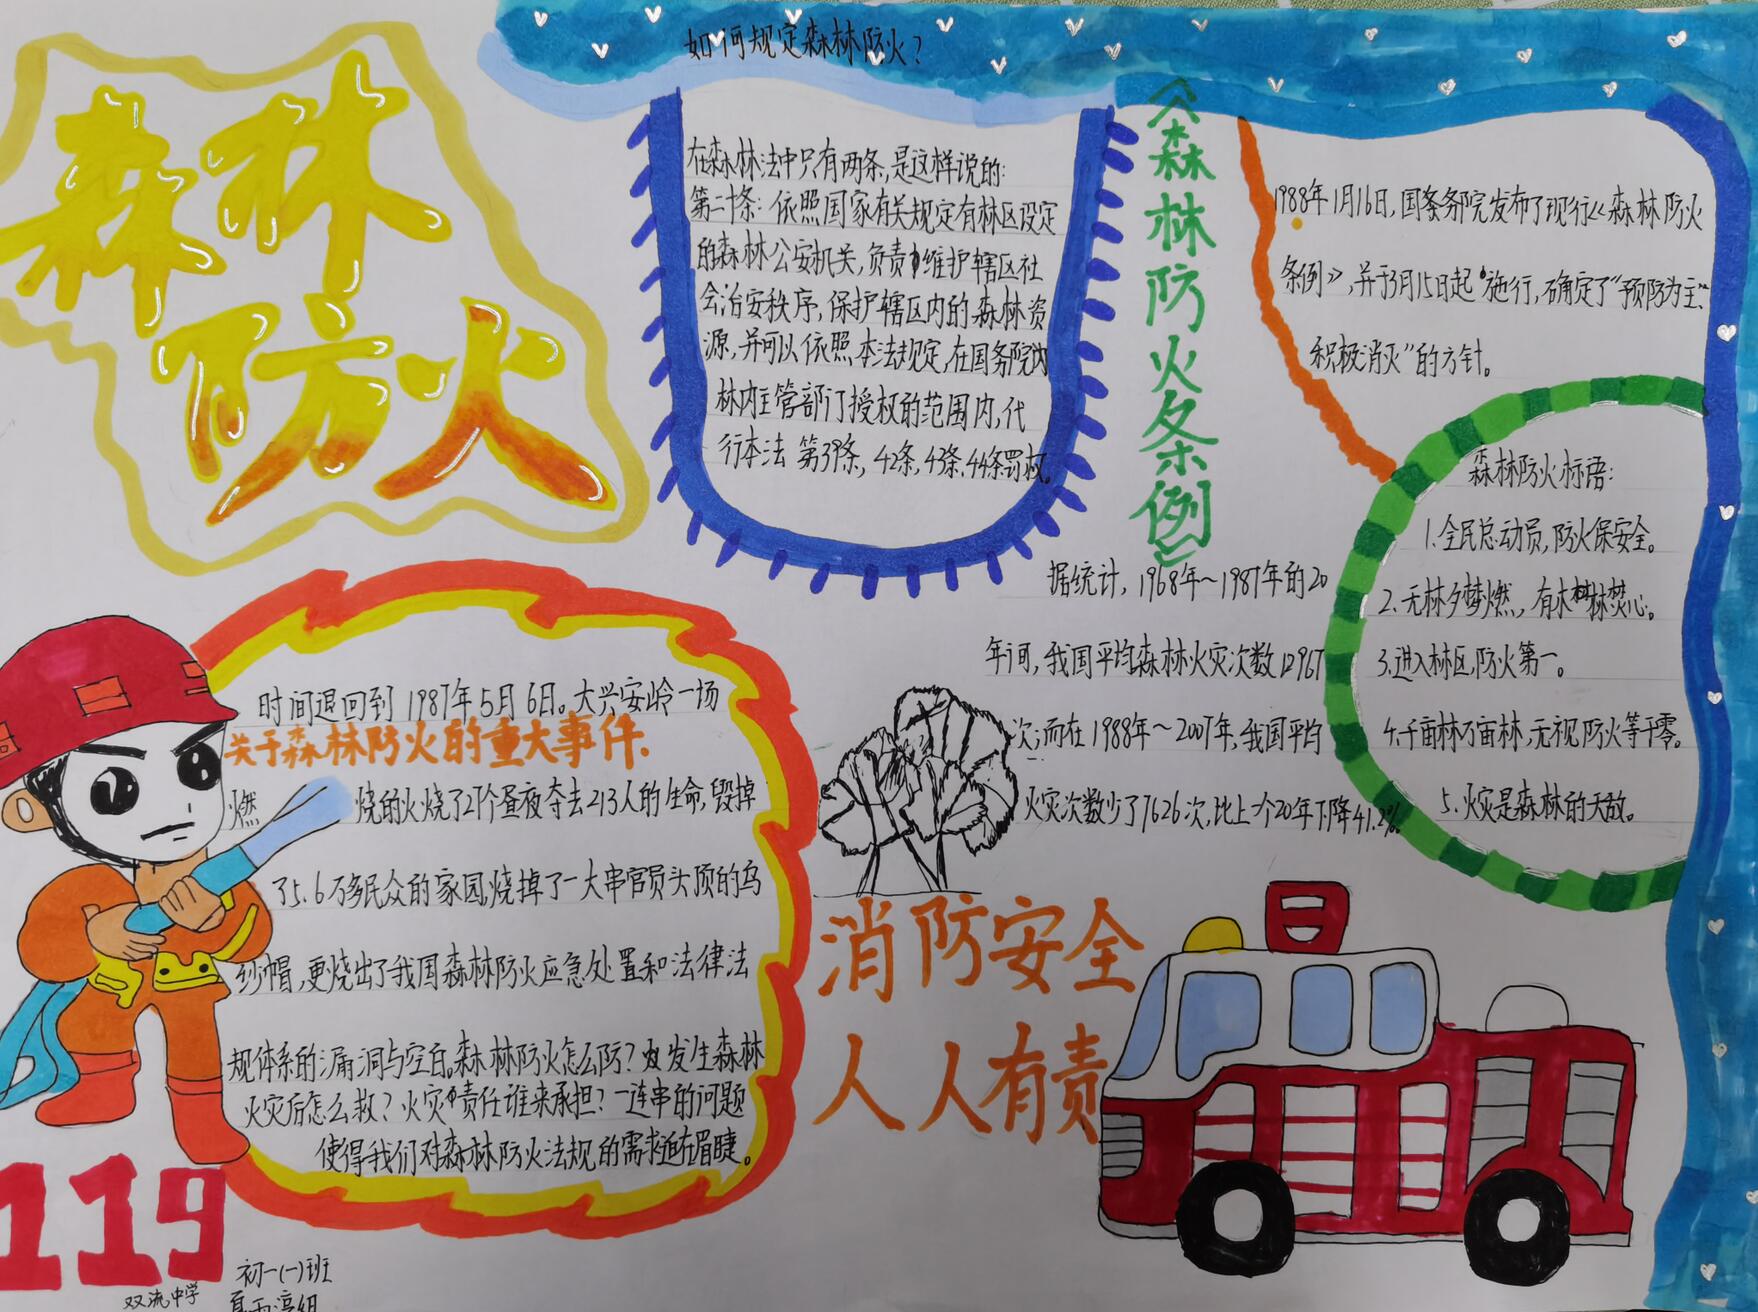 森林
防火
如何规定森林防火？
在森林法中只有两条，是这样说的：
第二十条：依照国家有关规定有林区设定
的森林公安机关，负责维护辖区社
会治安秩序，保护辖区内的森林资
源，并可以依照本法规定，在国务院内
林内主管部门授权的范围内，代
行本法 第39条，42条，43条、44条罚权。
《森林防火条例》
1988年1月16日，国务院发布了现行《森林防火
条例》，并于3月15日起施行，确定了“预防为主、
积极消灭”的方针。
据统计，1968年～1987年的20
年间，我国平均森林火灾次数12967
次；而在1988年～2007年，我国平均
火灾次数少了7626次，比上个20年下降41.2%
森林防火标语：
1.全民总动员，防火保安全。
2.无林夕梦燃，有木林焚心。
3.进入林区，防火第一。
4.千亩林万亩林，无视防火等于零。
5.火灾是森林的天敌。
时间退回到1987年5月6日。大兴安岭一场
关于森林防火的重大事件.
燃烧的火烧了27个昼夜夺去213人的生命，毁掉
了5.6万多民众的家园，烧掉了一大串官员头顶的乌
纱帽，更烧出了我国森林防火应急处置和法律法
规体系的漏洞与空白。森林防火怎么防？发生森林
火灾后怎么救？火灾责任谁来承担？一连串的问题
使得我们对森林防火法规的需求迫在眉睫。
消防安全
人人有责
119
双流中学
初一(一)班